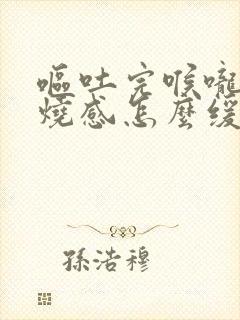 嘔吐完喉嚨
燒感怎麼緩
孫浩穆